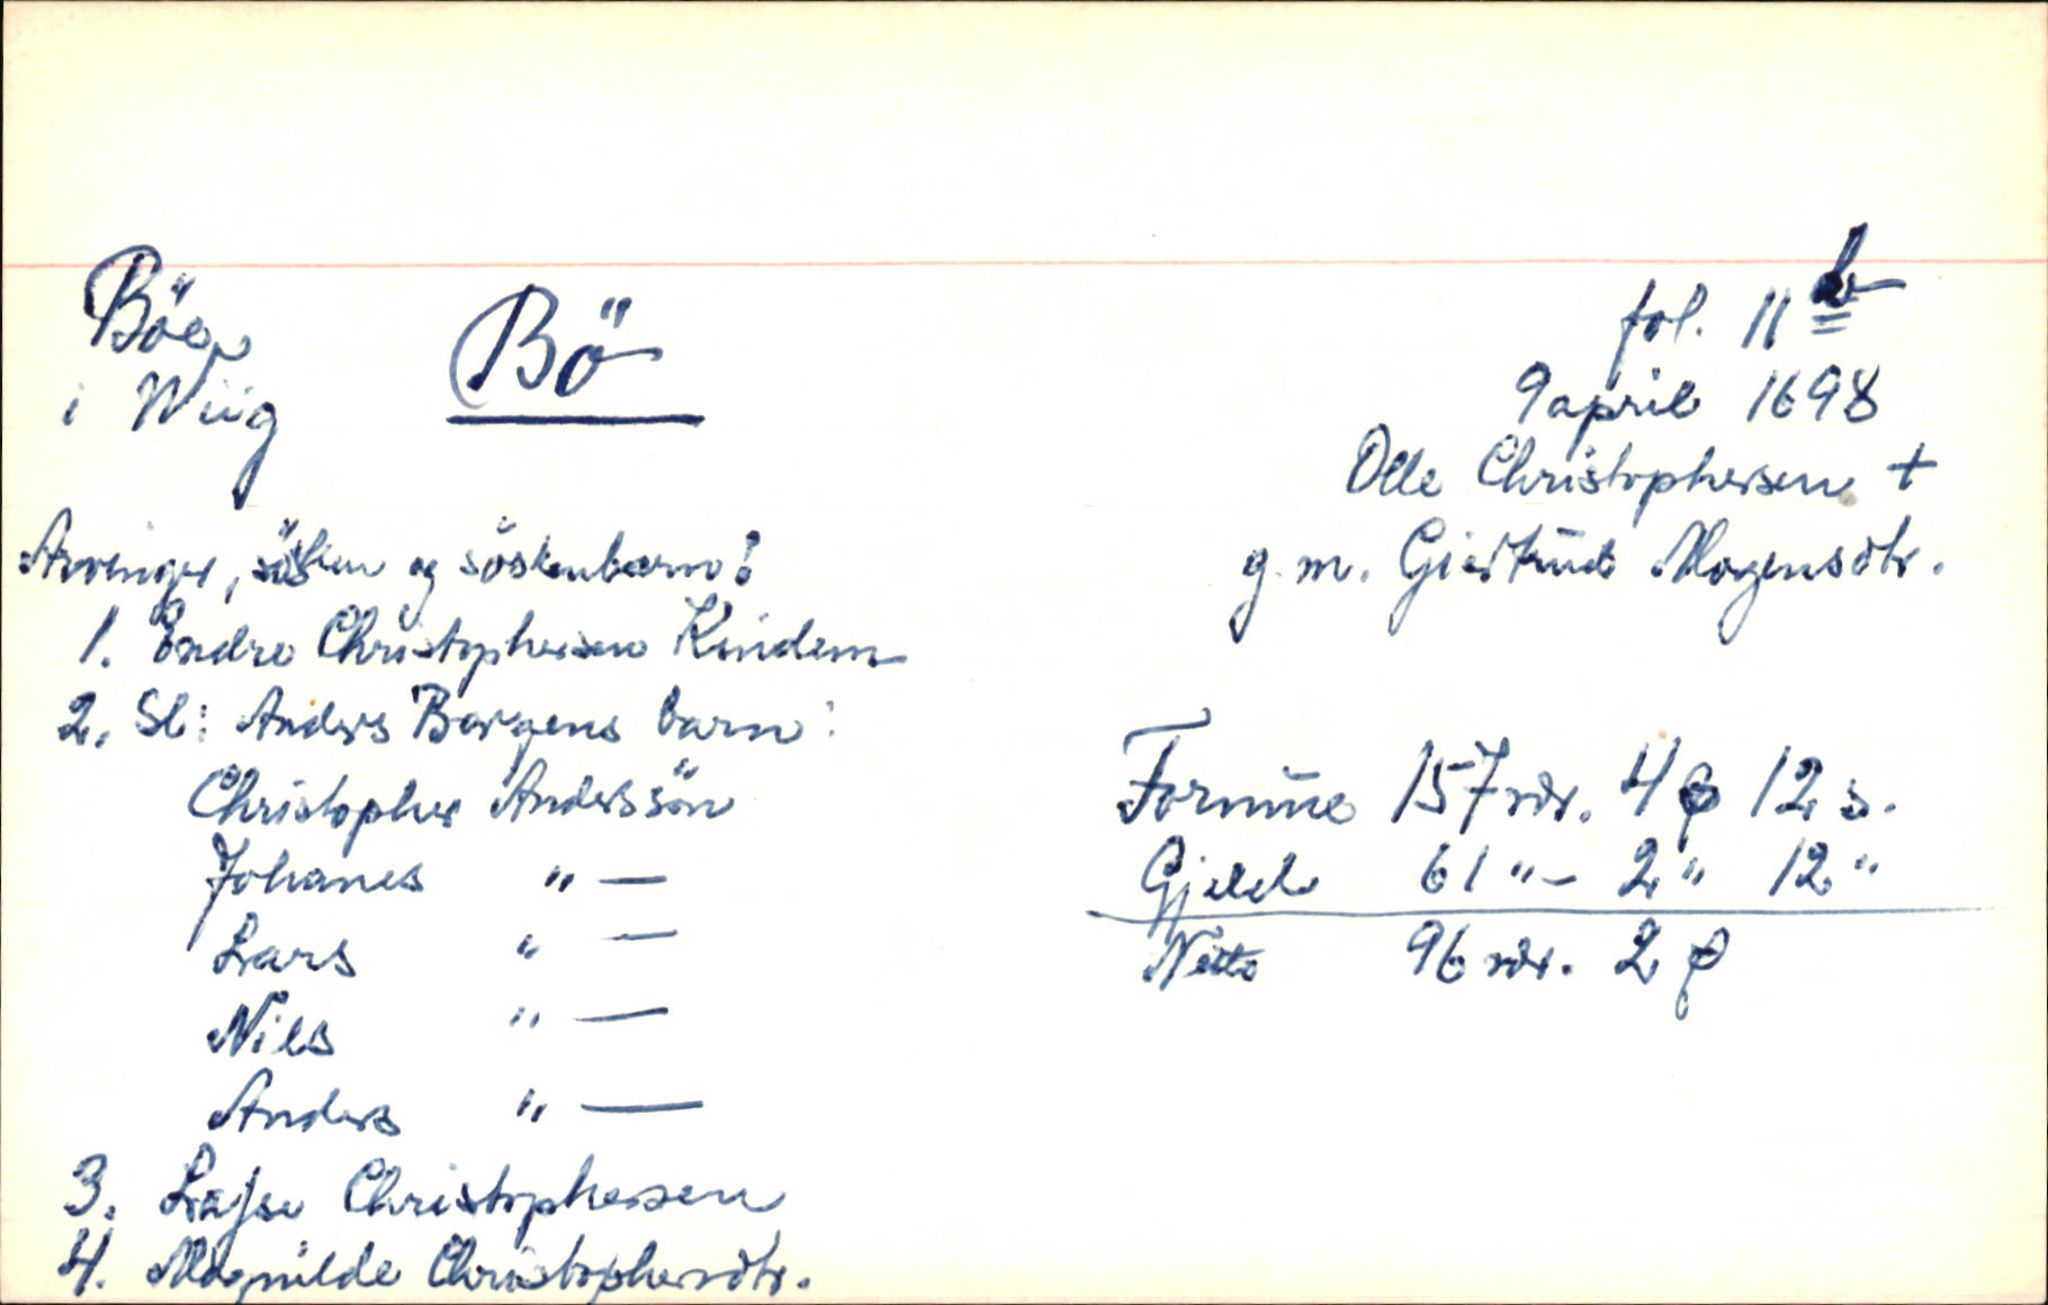 Böe
i Wiig
Bö
fol. 11 b
9 april 1698
Olle Christophersen +
g.m. Giertrud Mogensdtr.
Arvinger, sösken og söskenbarn:
1. Endre Christophersen Kindem
2. Sl: Anders Borgens barn:
Christopher Anderssön
Johanes " —
Lars " —
Niels " —
Anders " —
3. Lasse Christophersen
4. Magnilde Christophersdtr.
Formue 157 rdr. 4 ꝑ 12 s.
Gjeld 61 " - 2 " 12 "
Netto 96 rdr. 2 ꝑ